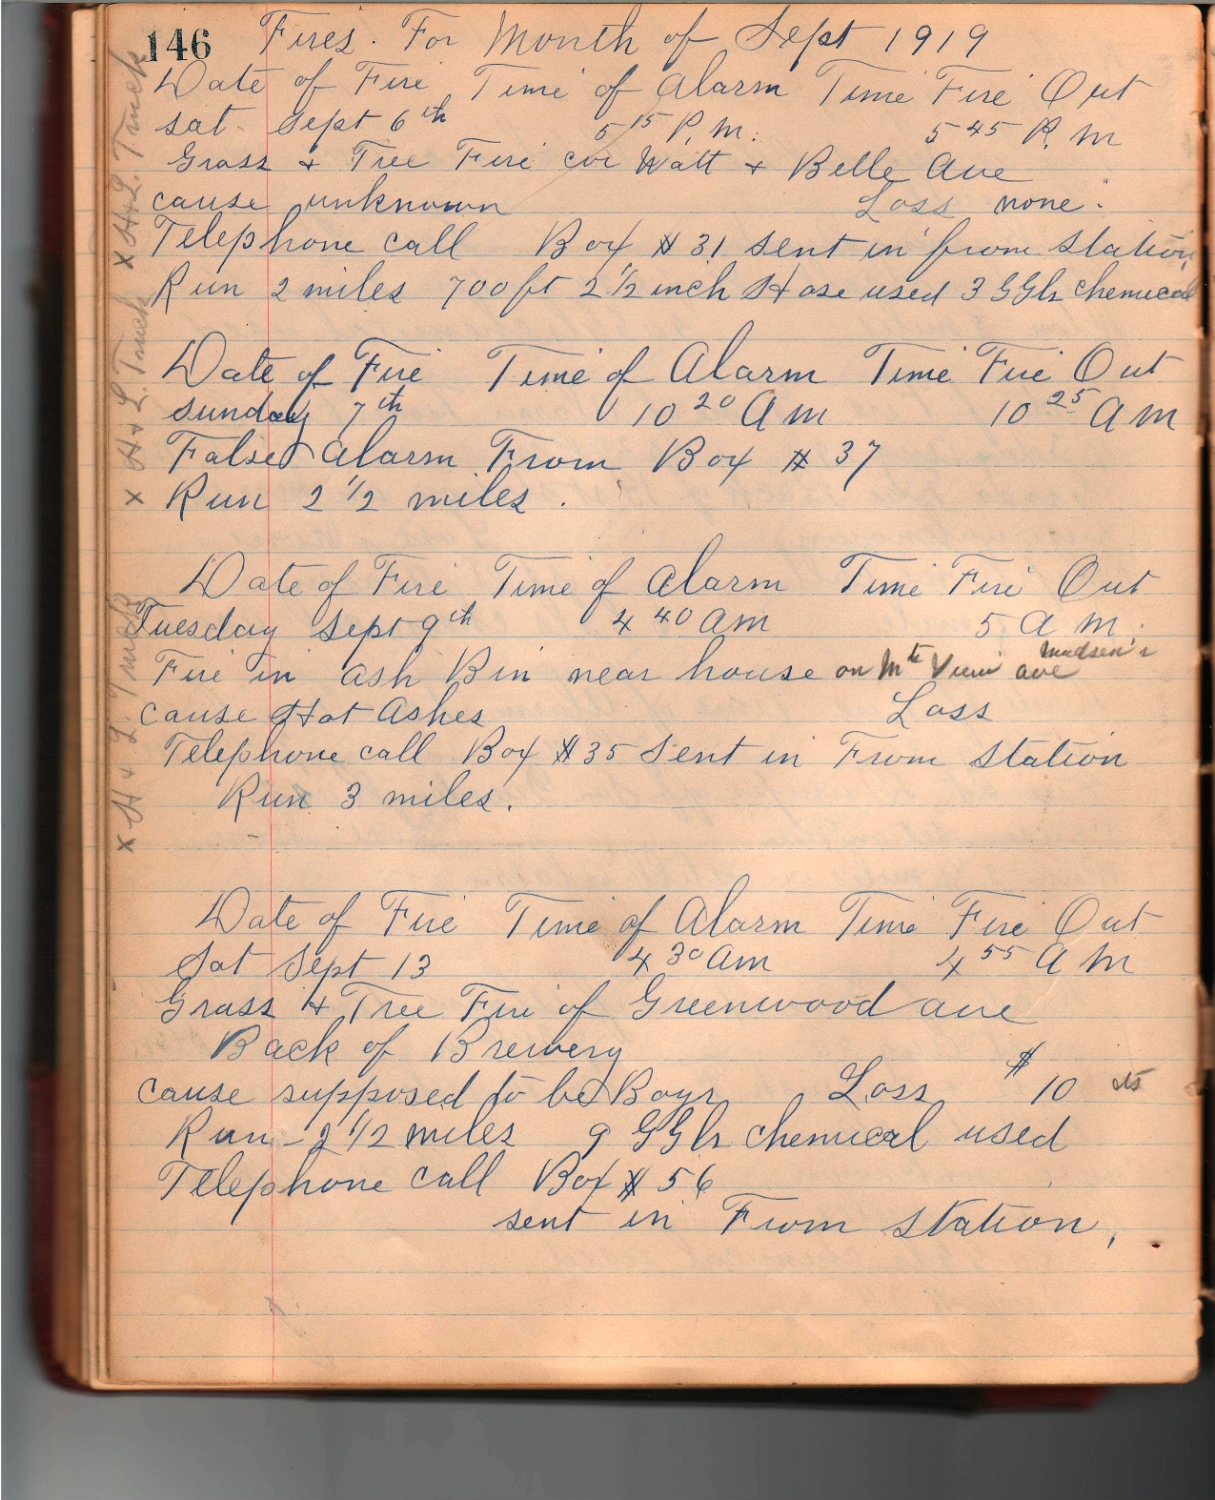 146 Fires. For Month of Sept 1919
Date of Fire Time of Alarm Time Fire Out
Sat. Sept 6th 5 15 P.M. 5 45 P.M
Grass & Tree Fire cor Watt & Belle Ave
cause unknown Loss none.
Telephone call Box # 31 sent in from station
Run 2 miles 700 ft 2 1/2 inch Hose used 3 GGls chemical
x H & L. Truck
Date of Fire Time of Alarm Time Fire Out
Sunday 7th 10 20 AM 10 25 AM
False Alarm From Box # 37
Run 2 1/2 miles.
x H & L. Truck
Date of Fire Time of Alarm Time Fire Out
Tuesday Sept 9th 4 40 AM 5 A M.
Fire in Ash Bin near house on Mt View ave Madsen's
cause Hot Ashes Loss
Telephone call Box # 35 Sent in From Station
Run 3 miles.
x H & L. Truck
Date of Fire Time of Alarm Time Fire Out
Sat Sept 13 4 30 AM 4 55 A M
Grass & Tree Fire of Greenwood ave
Back of Brewery
cause supposed to be Boys Loss $ 10 cts
Run - 2 1/2 miles 9 GGls chemical used
Telephone call Box # 56
sent in From station,